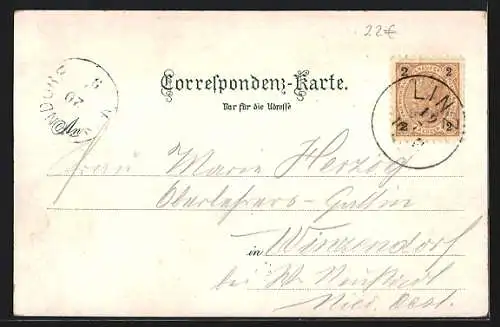 22€
Correspondenz-Karte.
Nur für die Adresse
2 2
LIN
An
Frau Marie Herzig
Oberlehrers-Gattin
in Winzendorf
bei W. Neustadt
Nied. Oest.